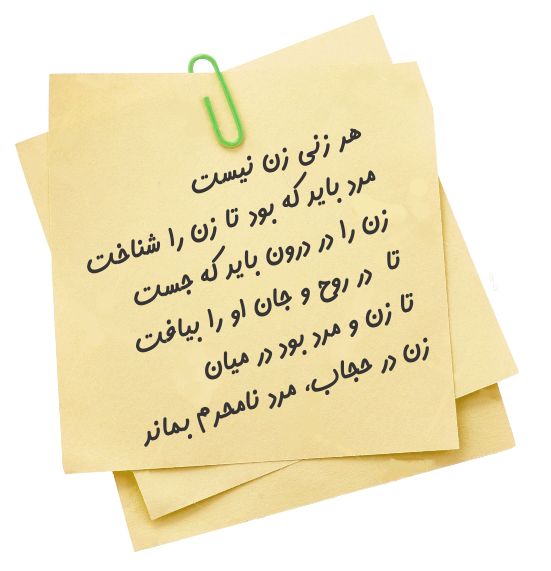 هر زنی زن نیست
مرد باید که بود تا زن را شناخت
زن را در درون باید که جست
تا در روح و جان او را بیافت
تا زن و مرد بود در میان
زن در حجاب، مرد نامحرم بماند